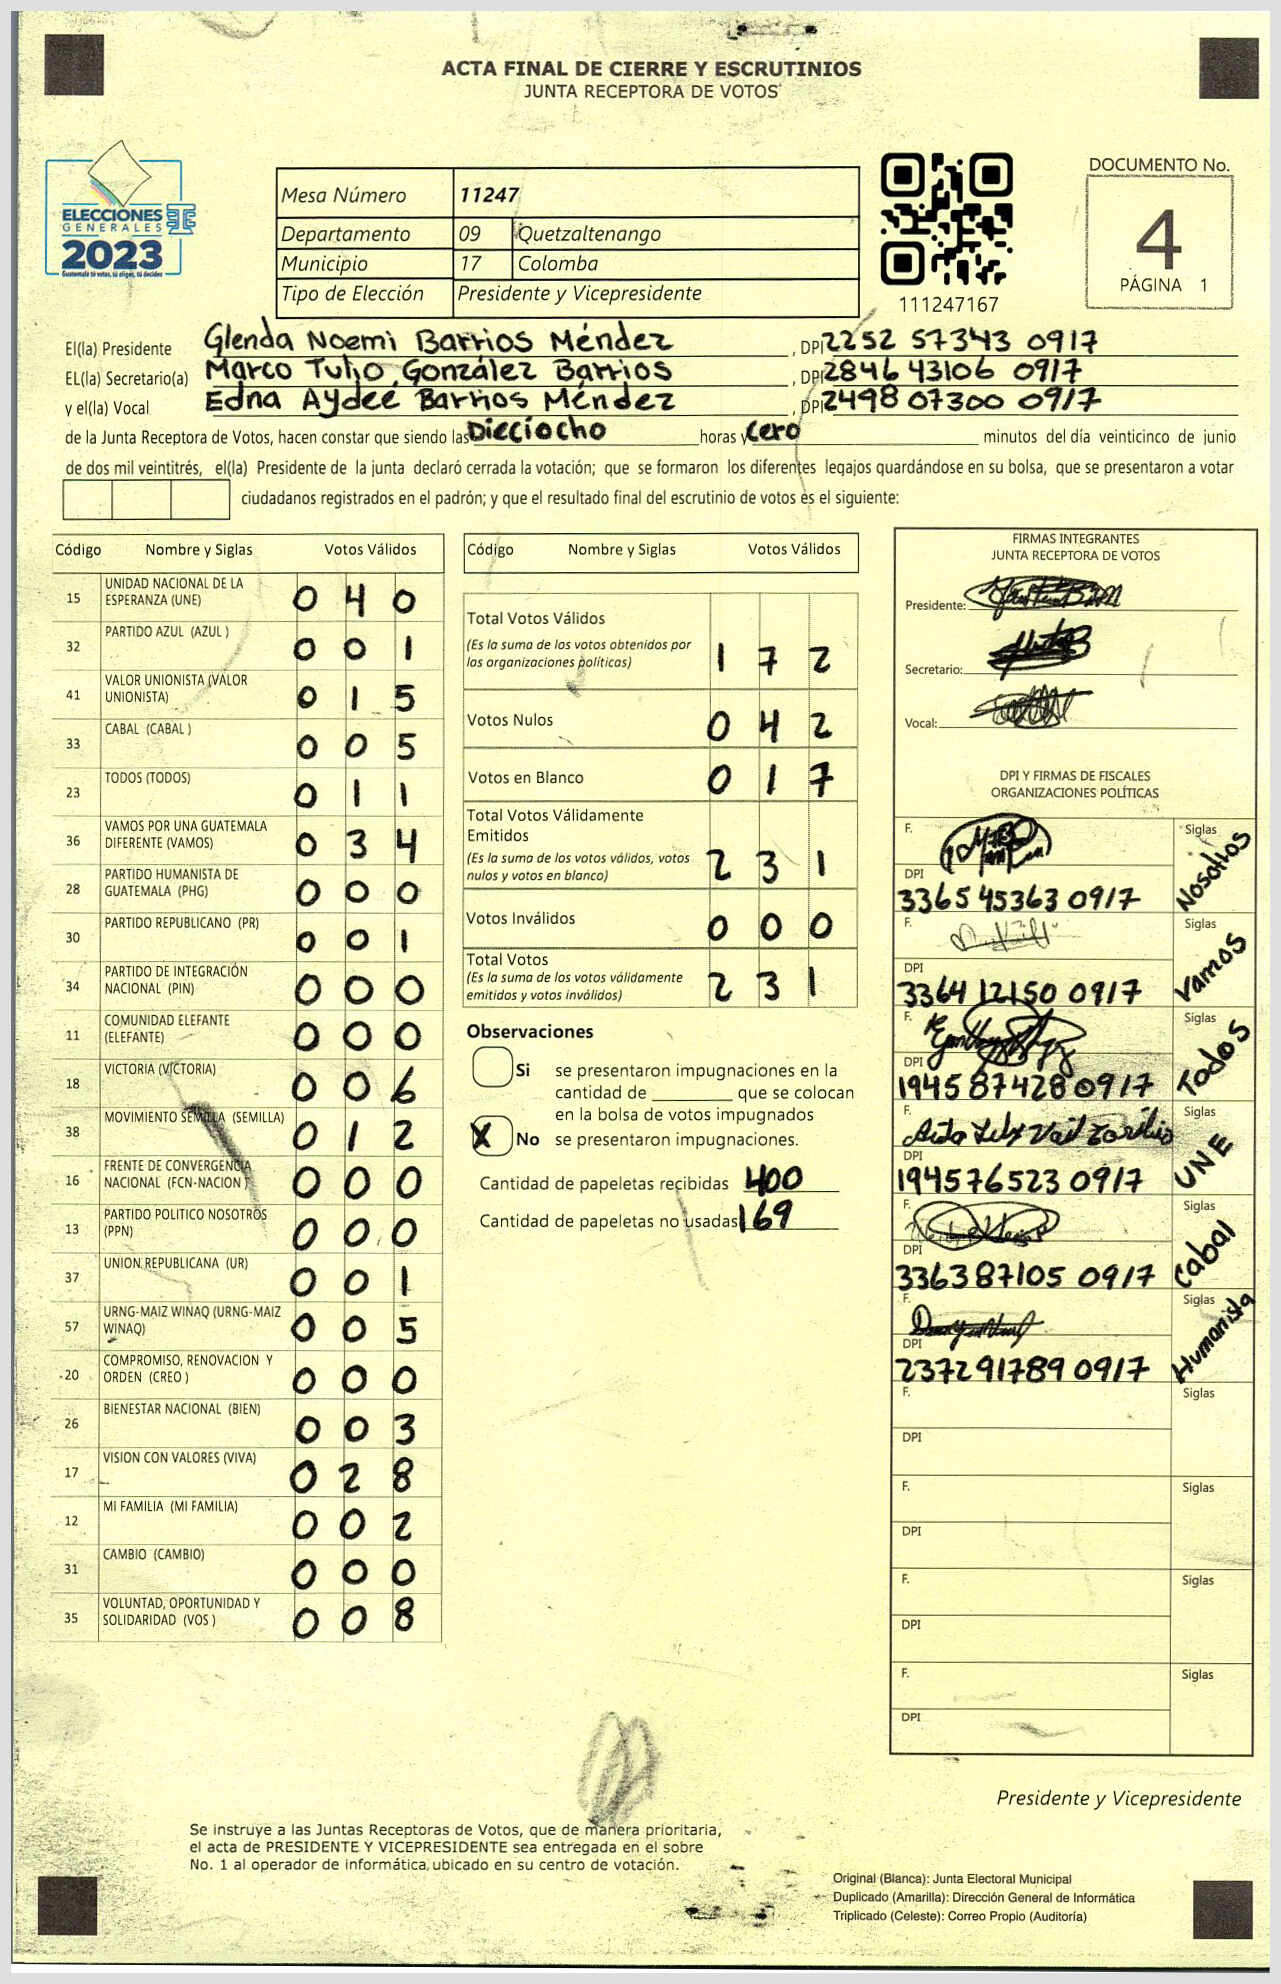 ACTA FINAL DE CIERRE Y ESCRUTINIOS
JUNTA RECEPTORA DE VOTOS
ELECCIONES
GENERALES
2023
Guatemala tú votas, tú eliges, tú decides
Mesa Número 11247
Departamento 09 Quetzaltenango
Municipio 17 Colomba
Tipo de Elección Presidente y Vicepresidente
111247167
DOCUMENTO No.
4
PÁGINA 1
El(la) Presidente Glenda Noemi Barrios Méndez , DPI 2252 57343 0917
EL(la) Secretario(a) Marco Tulio González Barrios , DPI 2846 43106 0917
y el(la) Vocal Edna Aydeé Barrios Méndez , DPI 2498 07300 0917
de la Junta Receptora de Votos, hacen constar que siendo las Dieciocho horas y cero minutos del día veinticinco de junio
de dos mil veintitrés, el(la) Presidente de la junta declaró cerrada la votación; que se formaron los diferentes legajos quardándose en su bolsa, que se presentaron a votar
ciudadanos registrados en el padrón; y que el resultado final del escrutinio de votos es el siguiente:
Código Nombre y Siglas Votos Válidos
15 UNIDAD NACIONAL DE LA ESPERANZA (UNE) 0 4 0
32 PARTIDO AZUL (AZUL ) 0 0 1
41 VALOR UNIONISTA (VALOR UNIONISTA) 0 1 5
33 CABAL (CABAL ) 0 0 5
23 TODOS (TODOS) 0 1 1
36 VAMOS POR UNA GUATEMALA DIFERENTE (VAMOS) 0 3 4
28 PARTIDO HUMANISTA DE GUATEMALA (PHG) 0 0 0
30 PARTIDO REPUBLICANO (PR) 0 0 1
34 PARTIDO DE INTEGRACIÓN NACIONAL (PIN) 0 0 0
11 COMUNIDAD ELEFANTE (ELEFANTE) 0 0 0
18 VICTORIA (VICTORIA) 0 0 6
38 MOVIMIENTO SEMILLA (SEMILLA) 0 1 2
16 FRENTE DE CONVERGENCIA NACIONAL (FCN-NACION ) 0 0 0
13 PARTIDO POLITICO NOSOTROS (PPN) 0 0 0
37 UNION REPUBLICANA (UR) 0 0 1
57 URNG-MAIZ WINAQ (URNG-MAIZ WINAQ) 0 0 5
20 COMPROMISO, RENOVACION Y ORDEN (CREO ) 0 0 0
26 BIENESTAR NACIONAL (BIEN) 0 0 3
17 VISION CON VALORES (VIVA) 0 2 8
12 MI FAMILIA (MI FAMILIA) 0 0 2
31 CAMBIO (CAMBIO) 0 0 0
35 VOLUNTAD, OPORTUNIDAD Y SOLIDARIDAD (VOS ) 0 0 8
Código Nombre y Siglas Votos Válidos
Total Votos Válidos
(Es la suma de los votos obtenidos por
las organizaciones políticas) 1 7 2
Votos Nulos 0 4 2
Votos en Blanco 0 1 7
Total Votos Válidamente
Emitidos
(Es la suma de los votos válidos, votos
nulos y votos en blanco) 2 3 1
Votos Inválidos 0 0 0
Total Votos
(Es la suma de los votos válidamente
emitidos y votos inválidos) 2 3 1
Observaciones
Si se presentaron impugnaciones en la
cantidad de ________ que se colocan
en la bolsa de votos impugnados
X No se presentaron impugnaciones.
Cantidad de papeletas recibidas 400
Cantidad de papeletas no usadas 169
FIRMAS INTEGRANTES
JUNTA RECEPTORA DE VOTOS
Presidente:
Secretario:
Vocal:
DPI Y FIRMAS DE FISCALES
ORGANIZACIONES POLÍTICAS
F. Siglas Nosotros
DPI 3365 45363 0917
F. Siglas Vamos
DPI 3364 12150 0917
F. Siglas Todos
DPI 1945 87428 0917
F. Siglas UNE
DPI 1945 76523 0917
F. Siglas Cabal
DPI 3363 87105 0917
F. Siglas Humanista
DPI 2372 91789 0917
F. Siglas
DPI
F. Siglas
DPI
F. Siglas
DPI
F. Siglas
DPI
Presidente y Vicepresidente
Se instruye a las Juntas Receptoras de Votos, que de manera prioritaria,
el acta de PRESIDENTE Y VICEPRESIDENTE sea entregada en el sobre
No. 1 al operador de informática ubicado en su centro de votación.
Original (Blanca): Junta Electoral Municipal
Duplicado (Amarilla): Dirección General de Informática
Triplicado (Celeste): Correo Propio (Auditoría)